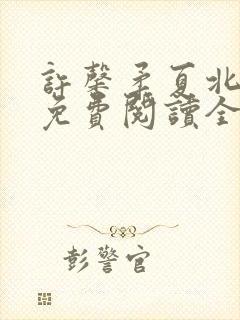 許馨矛夏北
免費閱讀全
彭警官